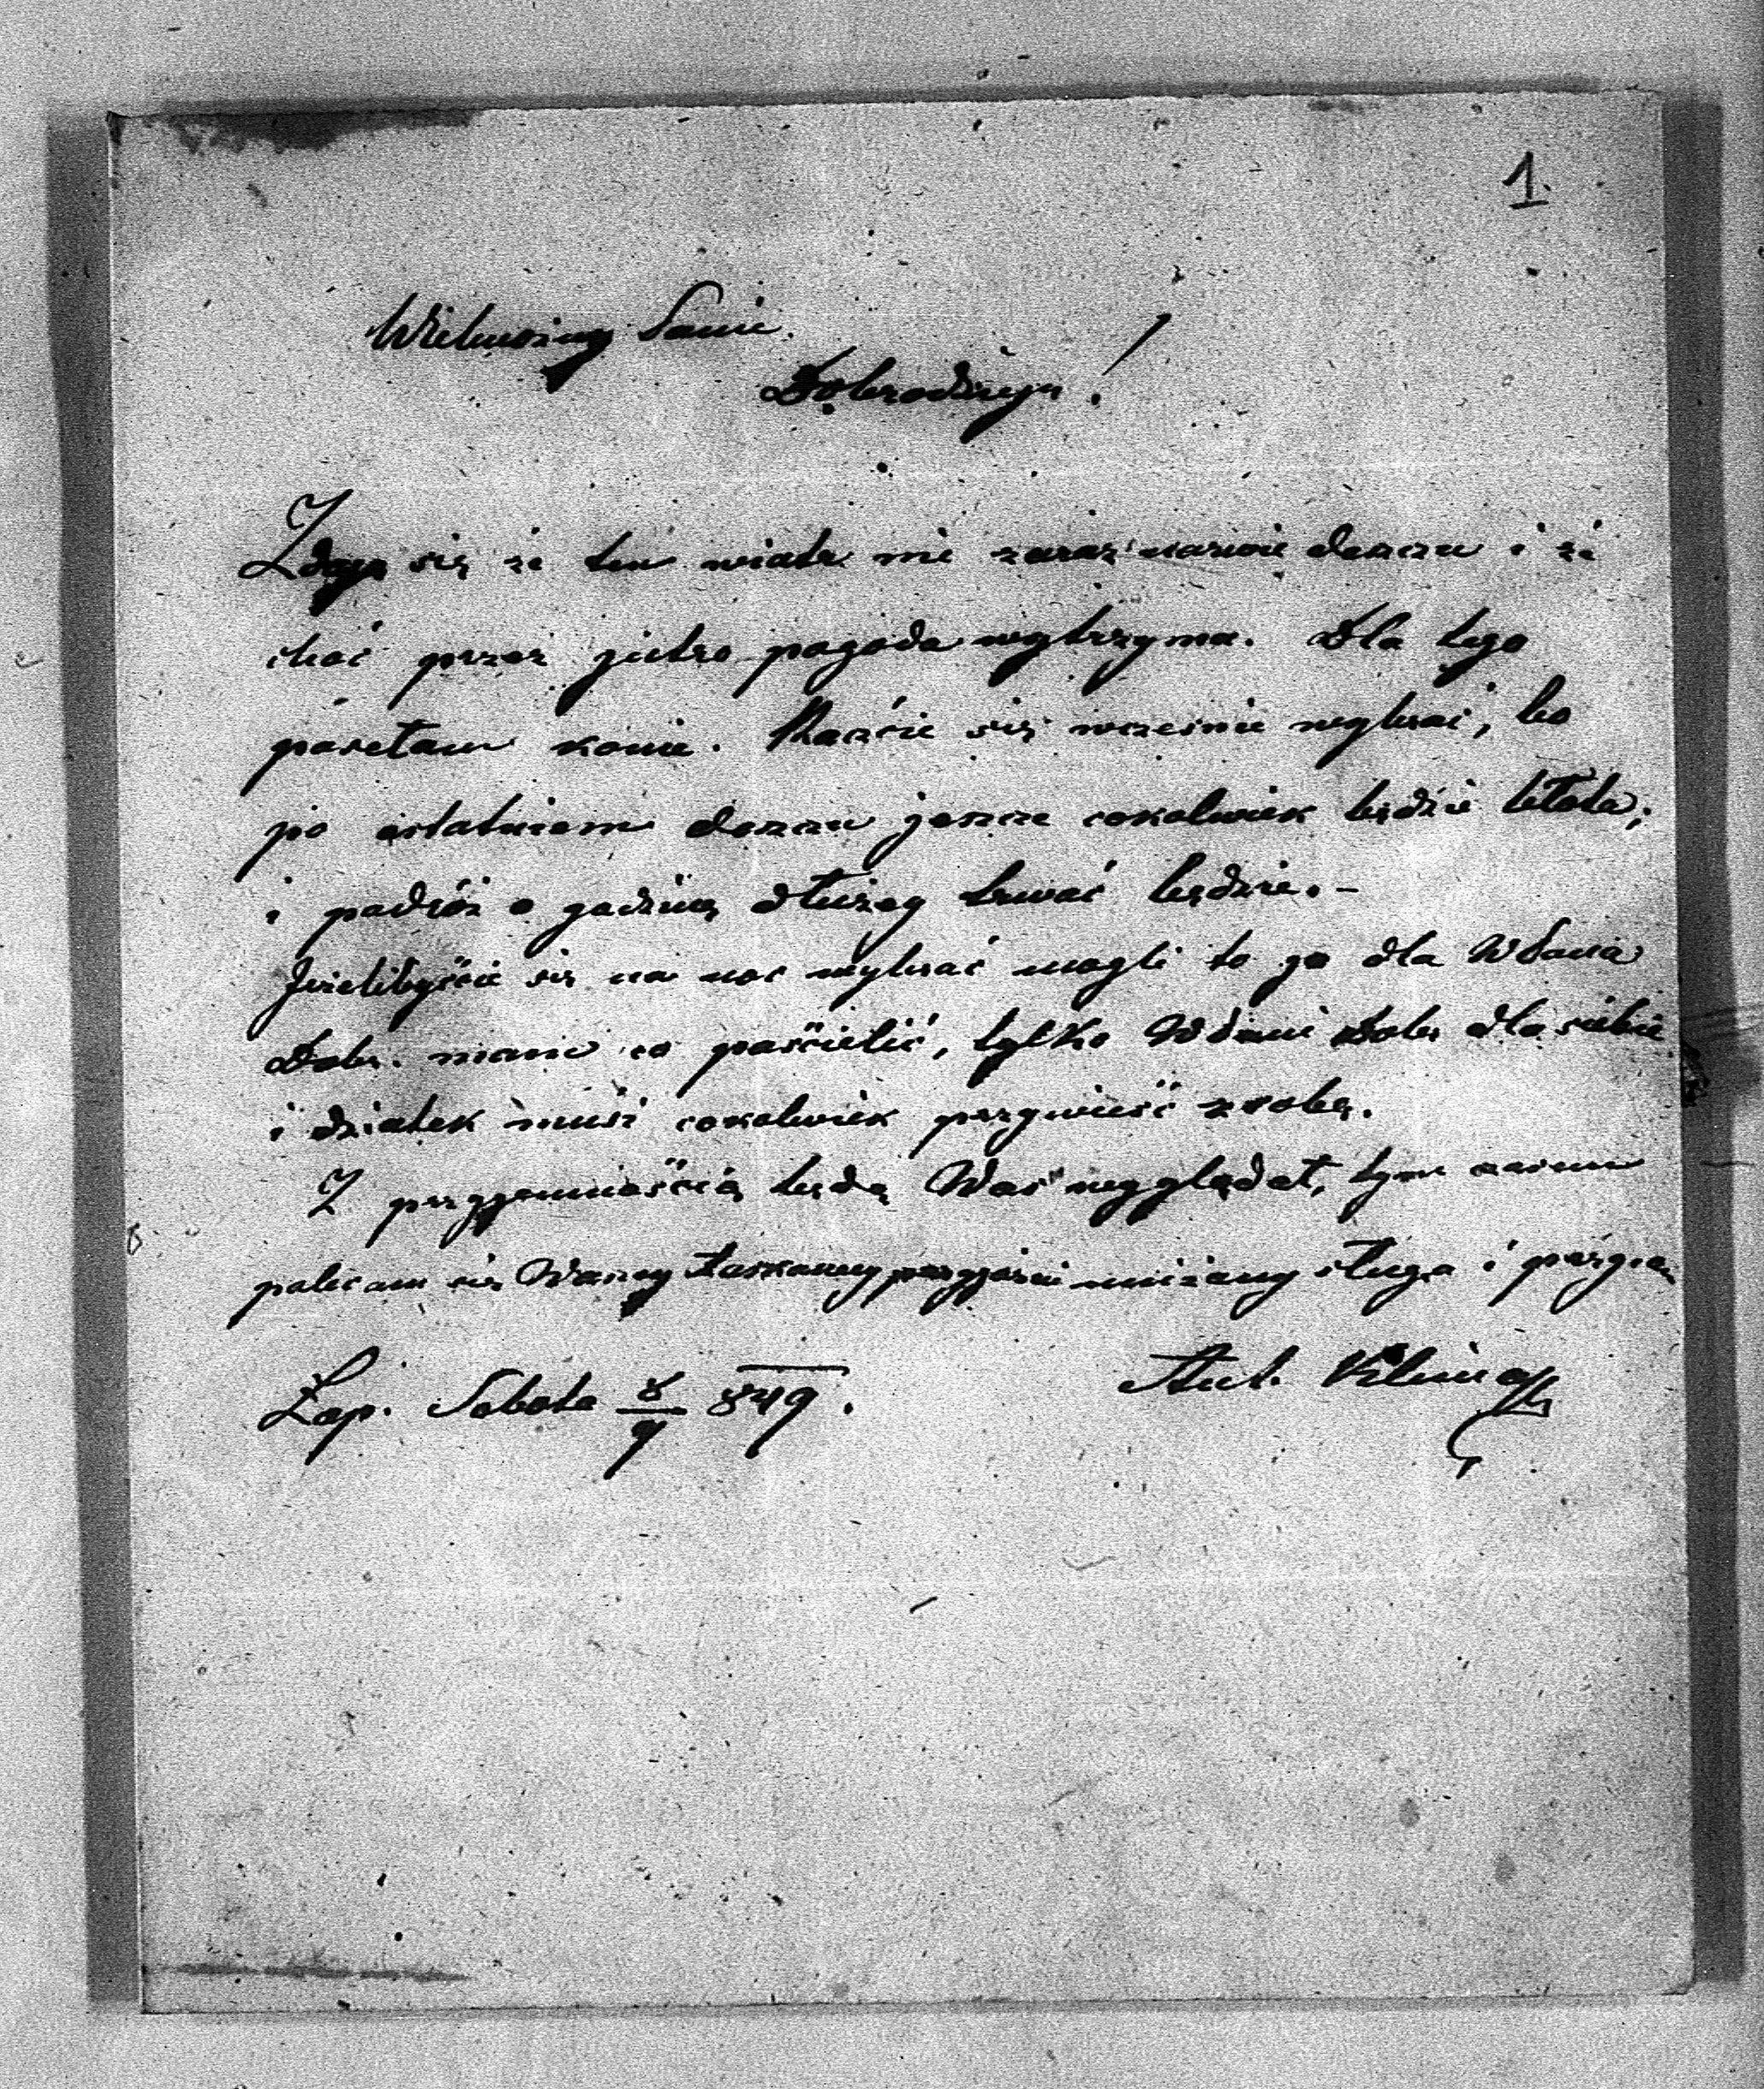 1.
Wielmożny Panie
Dobrodzieju!
Zdaje się że ten wiatr nie zaraz nazwie deszczu i że
choć przez jutro pogoda wytrzyma. Dla tego
posełam konie. Raczcie się wcześnie wybrać, bo
po ostatniem deszczu jeszcze cokolwiek będzie błota,
i podróż o godzinę dłużey trwać będzie. –
Jeżelibyście się na noc wybrać mogli to ja dla WPana
Dobr. mam co pościelić, tylko WPani Dobr dla siebie
i dziatek musi cokolwiek przywieść z sobą.
Z przyjemnością będę Was wyglądał, tym czasem
polecam się Waszey łaskawey przyjaźni uniżony sługa i przyja
Łop. Sobota 8/9 849.
Ant.